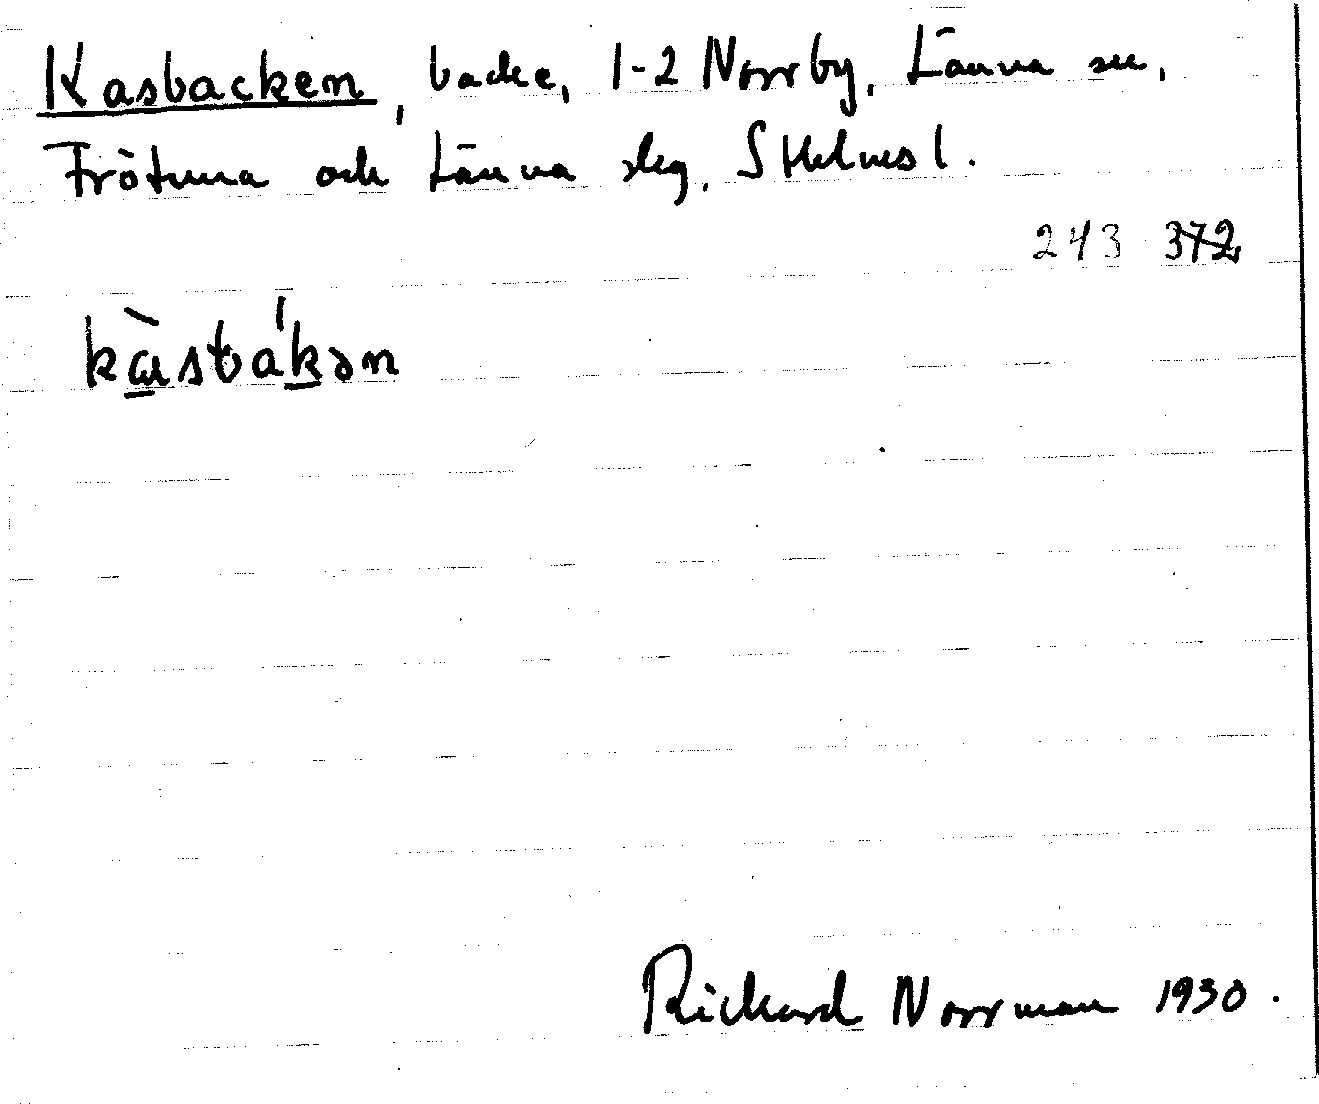 Kasbacken, backe, 1-2 Norrby, Länna sn,
Frötuna och Länna slg, Sthlms l.
243 372
kɑ̀sbákən
Rickard Norrman 1930.